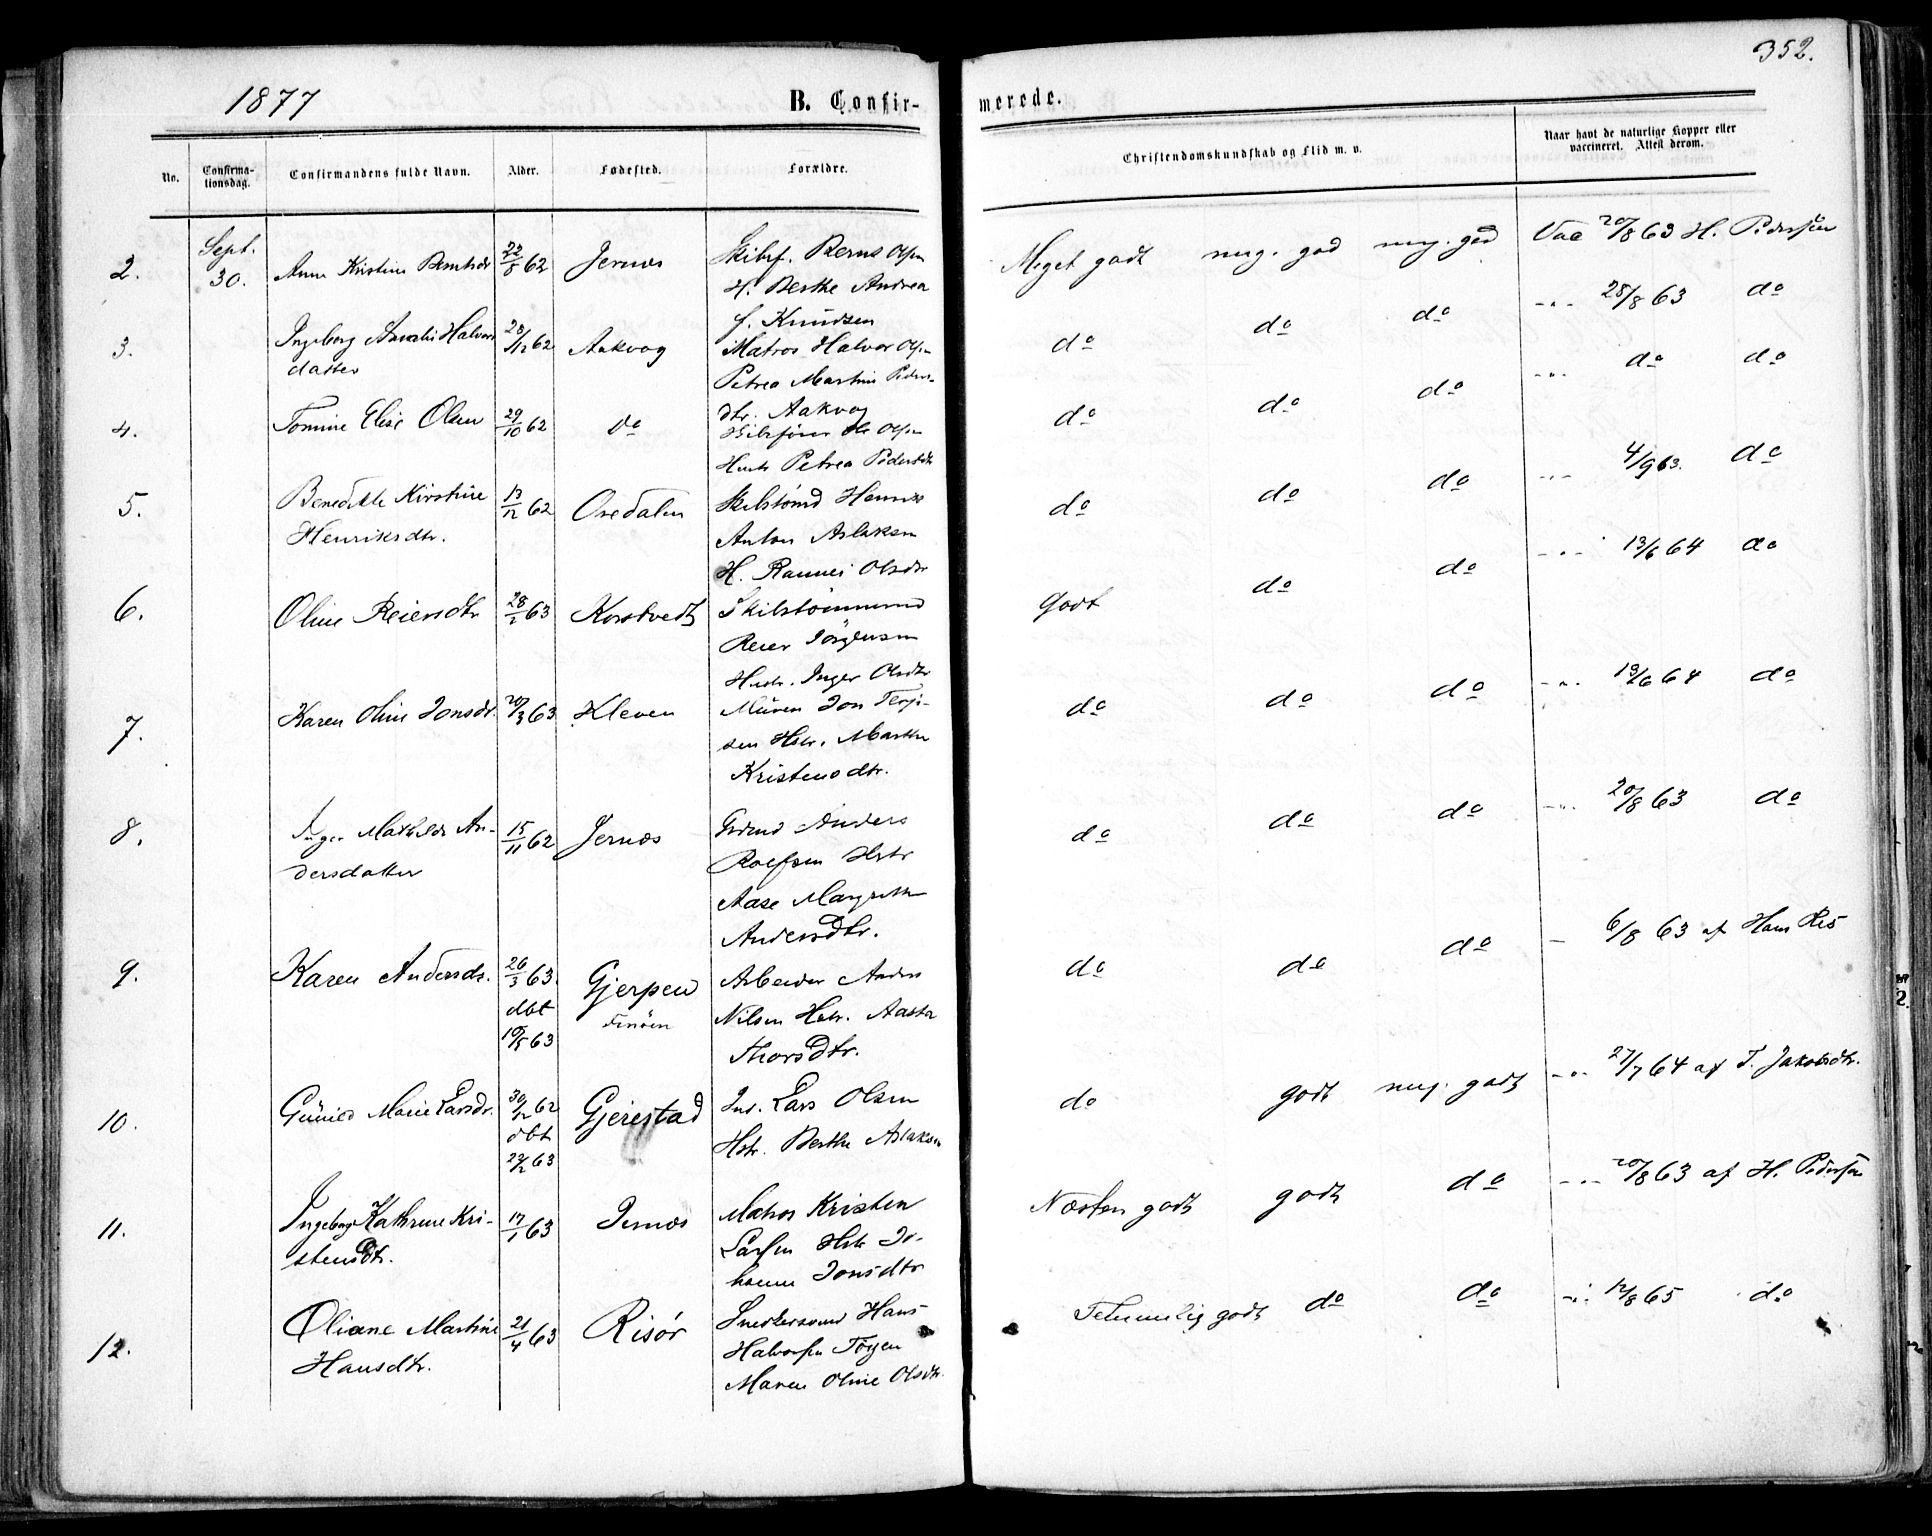 352.
1877
B. Confir-
merede.
No.
Confirma-
tionsdag.
Confirmandens fulde Navn.
Alder.
Fødested.
Forældre.
Christendomskundskab og Flid m. v.
Naar havt de naturlige Kopper eller
vaccineret. Attest derom.
2. Sept. 30. Anne Kristine Berntsdr 22/8 62 Jernæs Skibsf. Bernt Olsn
H. Berthe Andrea
f. Knudsen
Meget godt meg. god meg. god Vac 20/8 63 H. Pedersen
3. Ingeborg Amalie Halvors
datter 28/12 62 Aakvag Matros Halvor Olsn
Petrea Martine Peders-
dtr. Aakvag
do do do -"- 28/8 63 do
4. Tomine Elise Olsen 29/10 62 do Skibsfører Ole Olsn
Hustr Petrea Pedersdtr
do do do -"- do do
5. Benedikte Kirstine
Henriksdtr. 13/12 62 Oredalen Skibstømd Henrik
Anton Aslaksen
H. Rannei Olsdtr
do do do -"- 4/9 63. do
6. Oline Reiersdtr 28/2 63 Korstvedt Skibstømmermd
Reier Jörgensen
Hustr. Inger Olsdtr
Godt do do -"- 13/6 64 do
7. Karen Oline Jonsdr. 20/3 63 Kleven Murer Jon Terji-
sen Hstr. Marthe
Kristensdtr.
do do do -"- 13/6 64 do
8. Inger Mathilde An-
dersdatter 15/11 62 Jernæs Grdmd Anders
Roelfsen Hstr
Aase Margrethe
Andersdtr.
do do do -"- 20/8 63 do
9. Karen Andersdr. 26/3 63.
dbt
10/5 63 Gjerpen Arbeider Anders
Nilsen Hstr. Aasta
Thorsdtr.
do do do - 6/8 63 af Hans Riis
10. Gunild Marie Larsdr. 30/12 62
dbt
22/2 63 Gjerestad Ind. Lars Olsen
Hstr. Berthe Aslaksn
do godt meg. godt -"- 27/7 64 af T. Jakobsdtr.
11. Ingeborg Kathrine Kri-
stensdtr. 17/1 63 Jernæs Matros Kristen
Larsen Hstr Jo-
hanne Jonsdtr
Næsten godt godt do -"- 20/8 63 af H. Pedersen
12. Oliane Martine
Hansdtr. 21/4 63 Risør Snedkersvend Hans
Halvorsen Töyen
Maren Oline Olsdtr.
Temmelig godt do do -"- 12/8 65 do